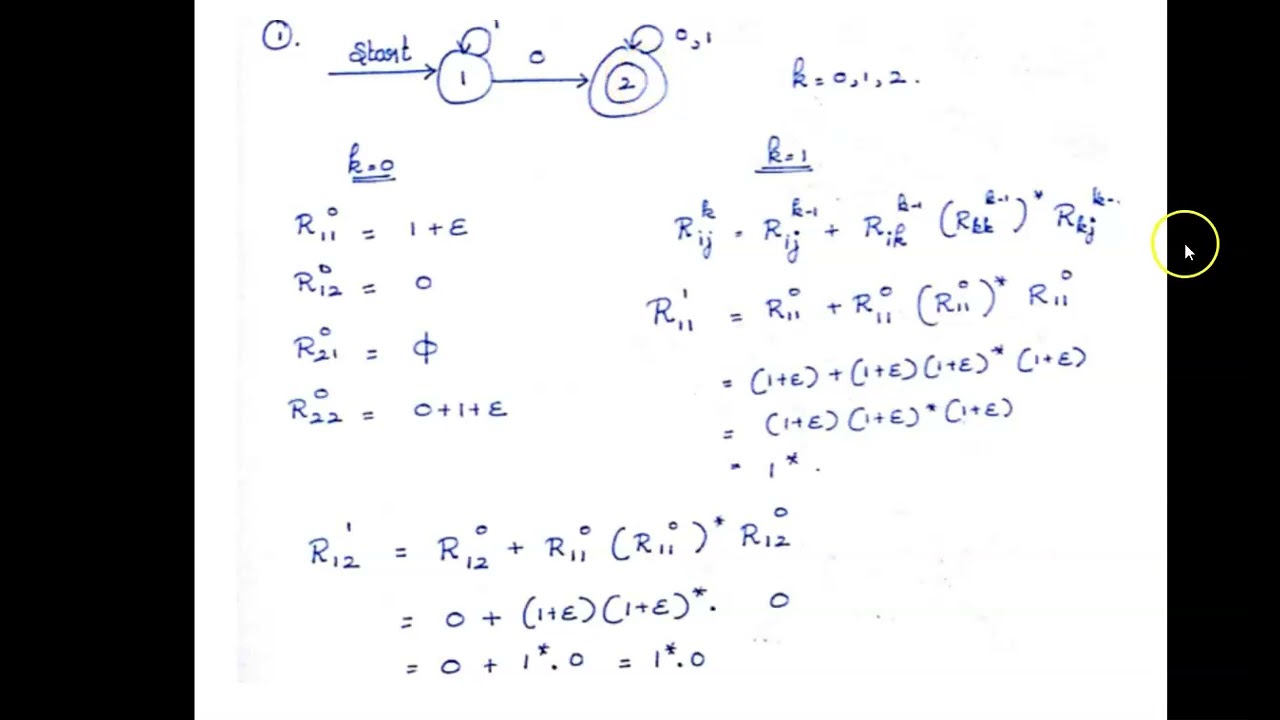 ①.
Start
1
1
0
2
0,1
k = 0, 1, 2.
k=0
R₁₁⁰ = 1 + ε
R₁₂⁰ = 0
R₂₁⁰ = ϕ
R₂₂⁰ = 0 + 1 + ε
k=1
Rᵢⱼᵏ = Rᵢⱼᵏ⁻¹ + Rᵢₖᵏ⁻¹ (Rₖₖᵏ⁻¹)* Rₖⱼᵏ⁻
R₁₁¹ = R₁₁⁰ + R₁₁⁰ (R₁₁⁰)* R₁₁⁰
= (1+ε) + (1+ε) (1+ε)* (1+ε)
= (1+ε) (1+ε)* (1+ε)
= 1*.
R₁₂¹ = R₁₂⁰ + R₁₁⁰ (R₁₁⁰)* R₁₂⁰
= 0 + (1+ε) (1+ε)*. 0
= 0 + 1*. 0 = 1*. 0